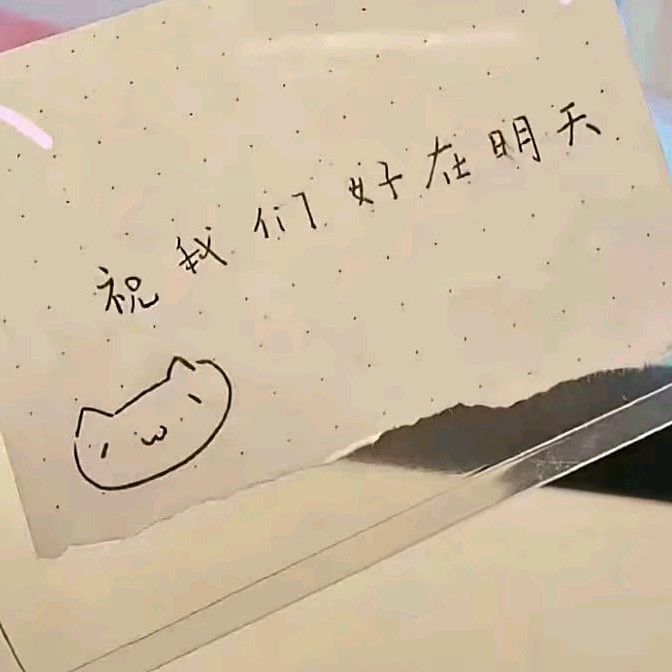 祝我们好在明天